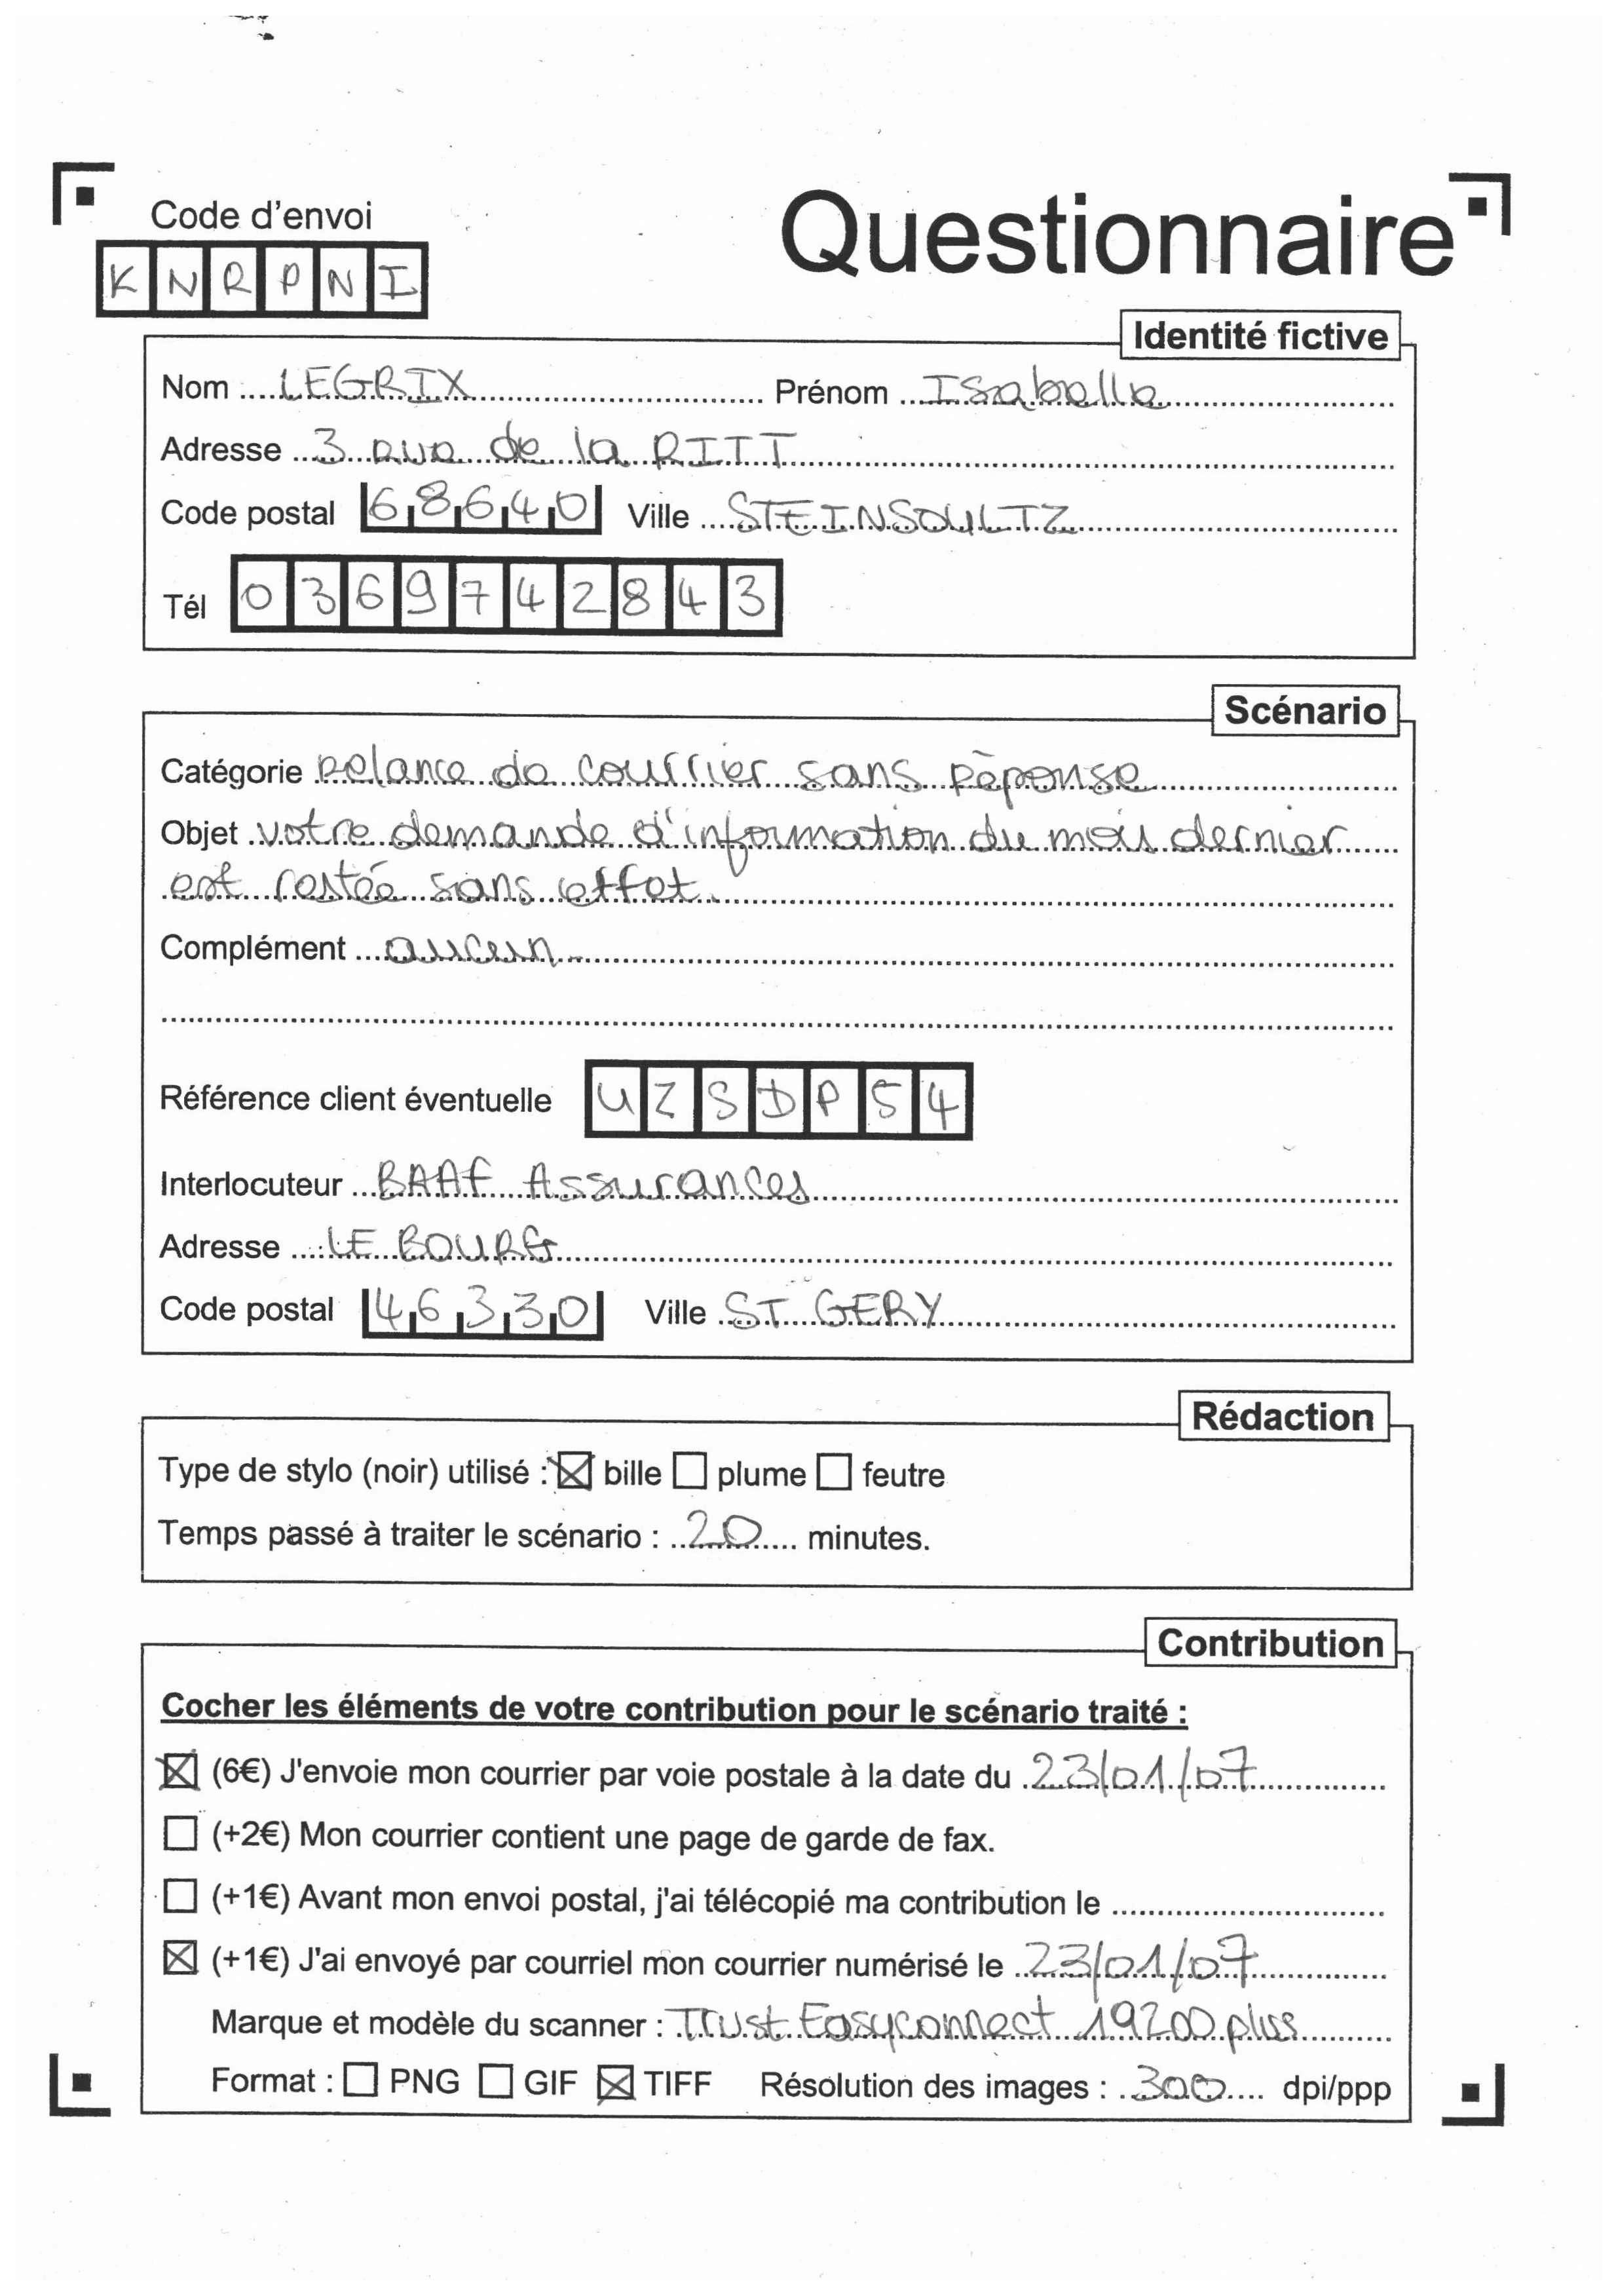 Code d'envoi
Questionnaire
K N R P N I
Identité fictive
Nom LEGRIX Prénom Isabelle
Adresse 3 rue de la RITT
Code postal 68640 Ville STEINSOULTZ
Tél 0369742843
Scénario
Catégorie relance de courrier sans réponse
Objet votre demande d'information du mois dernier
est restée sans effet.
Complément aucun
Référence client éventuelle UZSDP54
Interlocuteur BAAF Assurances
Adresse LE BOURG
Code postal 46330 Ville ST GERY
Rédaction
Type de stylo (noir) utilisé : ☒ bille ☐ plume ☐ feutre
Temps passé à traiter le scénario : 20 minutes.
Contribution
Cocher les éléments de votre contribution pour le scénario traité :
☒ (6€) J'envoie mon courrier par voie postale à la date du 23/01/07
☐ (+2€) Mon courrier contient une page de garde de fax.
☐ (+1€) Avant mon envoi postal, j'ai télécopié ma contribution le
☒ (+1€) J'ai envoyé par courriel mon courrier numérisé le 23/01/07
Marque et modèle du scanner : Trust Easyconnect 19200 plus
Format : ☐ PNG ☐ GIF ☒ TIFF Résolution des images : 300 dpi/ppp